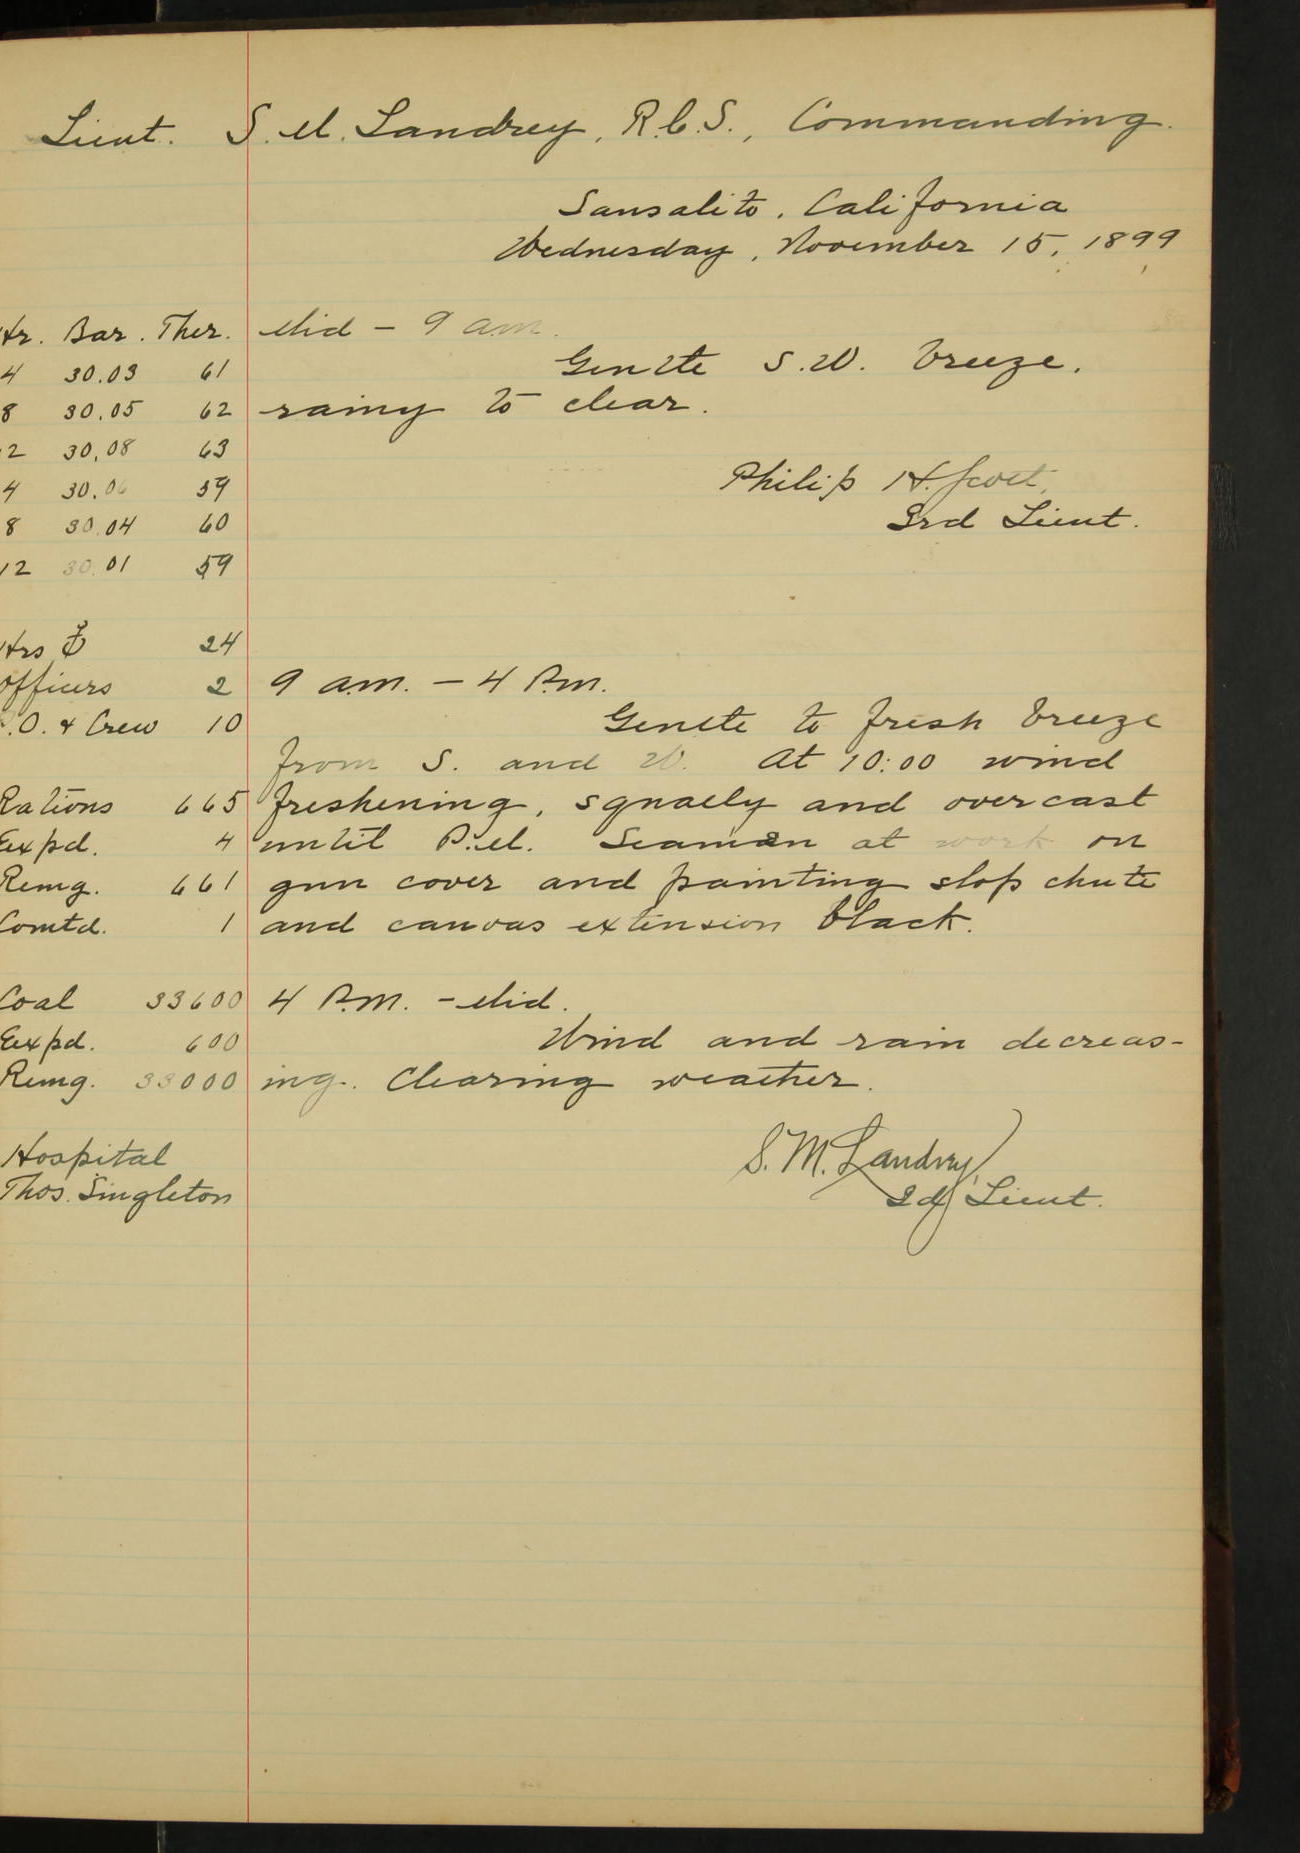 Lieut. S. M. Landrey, R.C.S., Commanding.
Sausalito, California
Wednesday, November 15, 1899
Hr. Bar. Ther. Mid - 9 a.m.
4 30.03 61 Gentle S.W. breeze.
8 30.05 62 rainy to clear.
12 30.08 63
4 30.06 59 Philip H. Scott,
8 30.04 60 3rd Lieut.
12 30.01 59
Hrs 24
Officers 2 9 a.m. - 4 P.m.
P.O. & Crew 10 Gentle to fresh breeze
from S. and W. At 10:00 wind
Rations 665 freshening, squally and overcast
Expd. 4 until P.M. Seaman at work on
Remg. 661 gun cover and painting slop chute
Comtd. 1 and canvas extension black.
Coal 33600 4 P.M. - Mid.
Expd. 600 Wind and rain decreas-
Remg. 33000 ing. Clearing weather.
Hospital S. M. Landrey,
Thos. Singleton 2d Lieut.